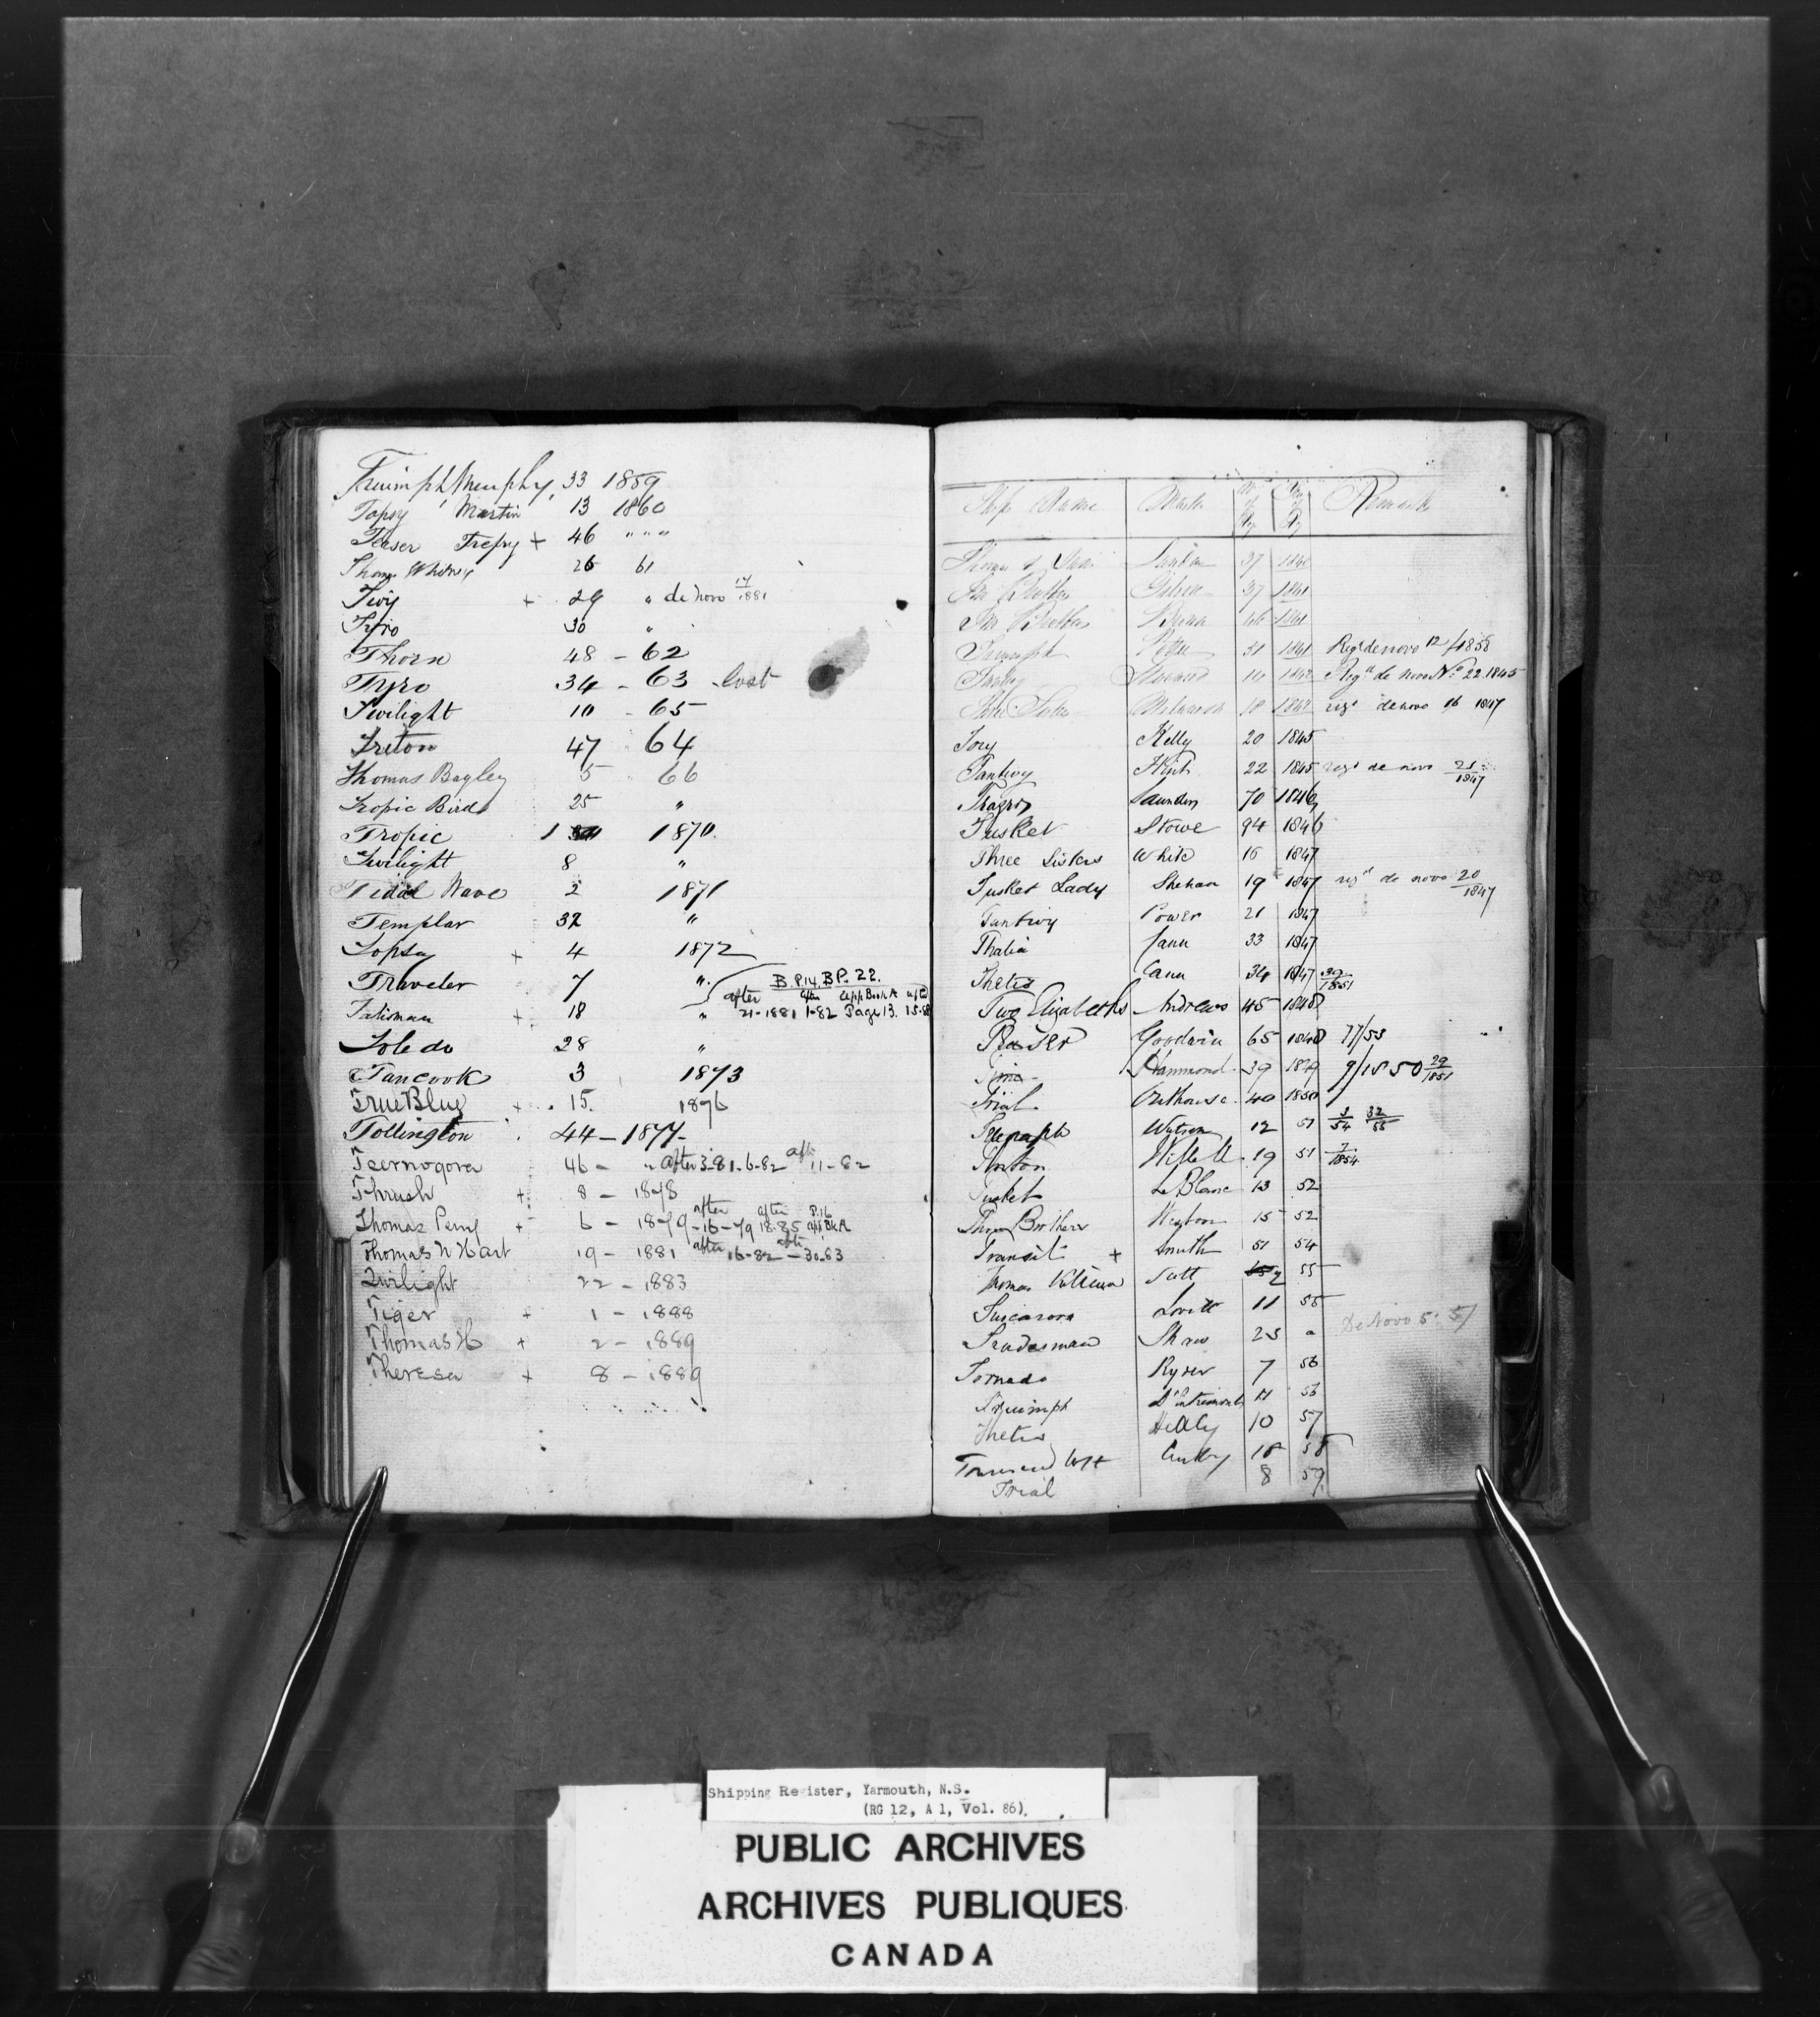 Triumph Murphy, 33 1859
Topsy Martin 13 1860
Teaser Trefry + 46 " " "
Thomas Whitney 26 61
Tivy + 29 " de novo 17/1881
Tyro 30 "
Thorn 48 - 62
Tyro 34 - 63 - lost
Twilight 10 - 65
Triton 47 64
Thomas Bagley 5 66
Tropic Bird 25 "
Tropic 1 1870.
Twilight 8 "
Tidal Wave 2 1871
Templar 32 "
Topsy + 4 1872
Traveler 7 " B.P.14. B.P. 22.
after after App Book A after
Talisman + 18 " 21-1881 1-82 Page 13. 15-88
Toledo 28 "
Tancook 3 1873
True Blue + 15. 1876
Tollington 44 - 1877-
Tsernogora 46 - " after 3-81-6-82 after 11-82
Thrush + 8 - 1878
Thomas Perry + 6 - 1879 after -16-79 after 18-85 P.16 App Bk A
Thomas N Hart 19 - 1881 after 16-82 after - 30-83
Twilight 22 - 1883
Tiger + 1 - 1888
Thomas H + 2 - 1889
Theresa + 8 - 1889
Ship Name Master No of Rg Yr of Rg Remarks
Thomas & 37 1840
Brothers 37 1841
Brothers 46 1841
Triumph 31 1841 Regd de novo 12/1858
10 1842 Regd de novo No 22. 1845
18 1842 regd de novo 16 1847
Tory Kelly 20 1845
Tantivy 22 1845 regd de novo 21/1847
Saunders 70 1846
Tusket Stowe 94 1846
Three Sisters White 16 1847
Tusket Lady Shehan 19 1847 regd de novo 20/1847
Tantivy Power 21 1847
Thalia Cann 33 1847
Thetis Cann 34 1847 30/1851
Two Elizabeths Andrews 45 1848
Goodwin 65 1848 77/53
Hammond 39 1849 9/1850 29/1851
Trial Outhouse 40 1850
Telegraph Watson 12 51 3/54 32/55
19 51 7/1854
Tusket LeBlanc 13 52
Three Brothers Weston 15 52
Transit + Smith 51 54
Thomas Killam Scott 55
Tuscarora Lovitt 11 55
Tradesman Shaw 23 " De Novo 5: 57
Tornado Ryder 7 56
Triumph D'Entremont 11 56
Thetis Healy 10 57
Townsend 18 58
Trial 8 59
Shipping Register, Yarmouth, N.S.
(RG 12, A 1, Vol. 86).
PUBLIC ARCHIVES
ARCHIVES PUBLIQUES
CANADA